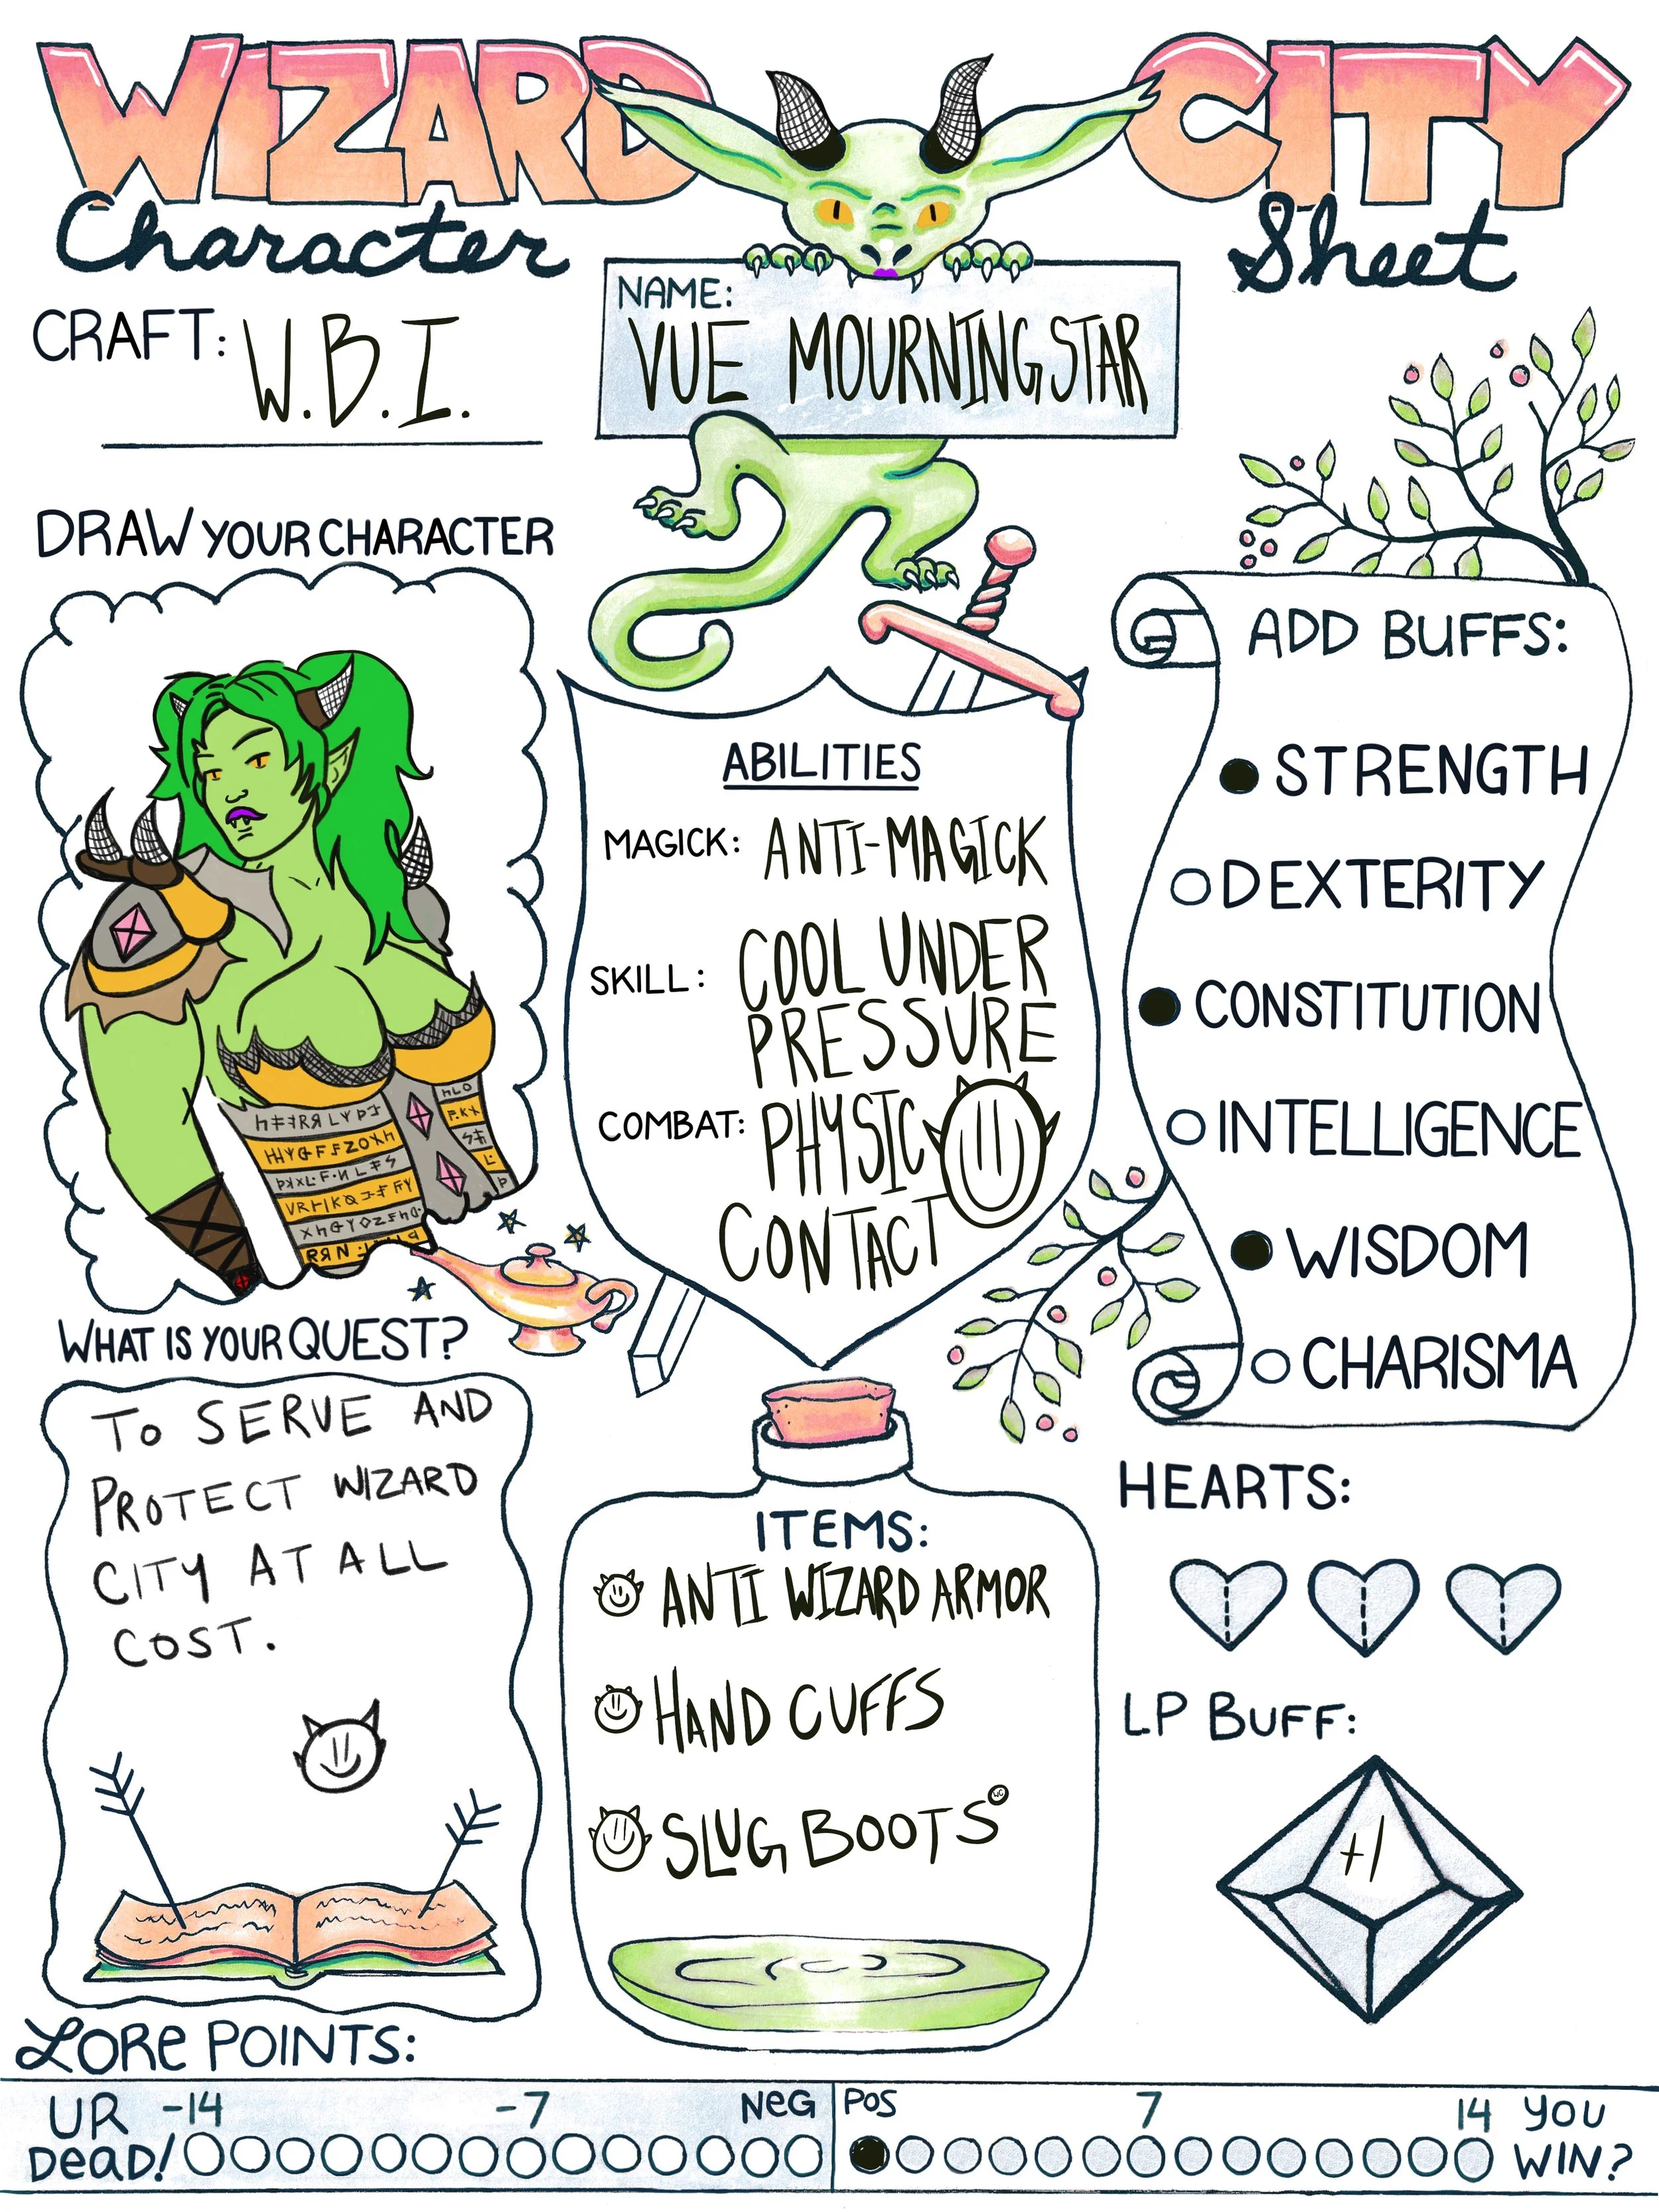 WIZARD CITY
Character Sheet
CRAFT: W.B.I.
NAME:
VUE MOURNINGSTAR
DRAW YOUR CHARACTER
ABILITIES
MAGICK: ANTI-MAGICK
SKILL: COOL UNDER
PRESSURE
COMBAT: PHYSIC
CONTACT
ADD BUFFS:
STRENGTH
DEXTERITY
CONSTITUTION
INTELLIGENCE
WISDOM
CHARISMA
WHAT IS YOUR QUEST?
TO SERVE AND
PROTECT WIZARD
CITY AT ALL
COST.
ITEMS:
ANTI WIZARD ARMOR
HAND CUFFS
SLUG BOOTS
HEARTS:
LP BUFF:
+1
LORE POINTS:
UR DEAD! -14 -7 NEG
POS 7 14 YOU WIN?